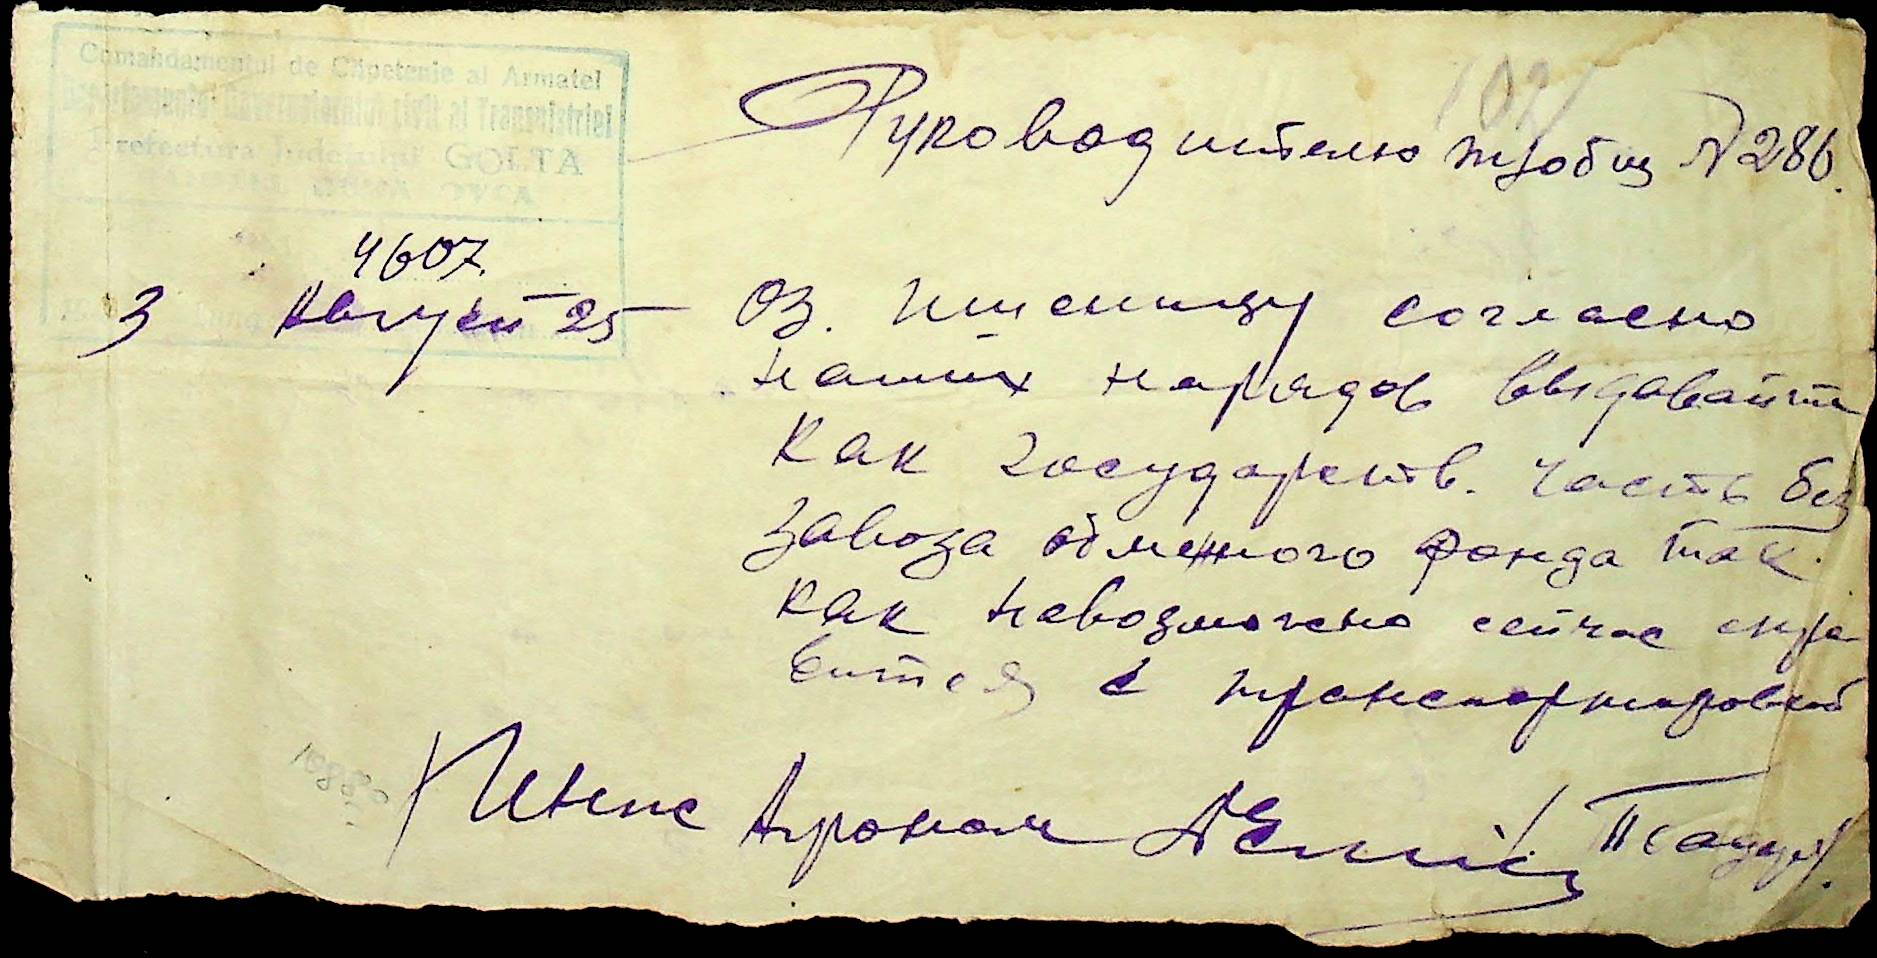 Comandamentul de Căpetenie al Armatei
Guvernamentul civil al Transnistriei
Prefectura Județului GOLTA
102
Руководителю тробщ № 286.
4607
3 Август 25
Оз. пшеницу согласно
наших нарядов выдавайте
как государств. часть без
завоза обменного фонда так
как невозможно сейчас спра
виться с транспортировкой
Агроном